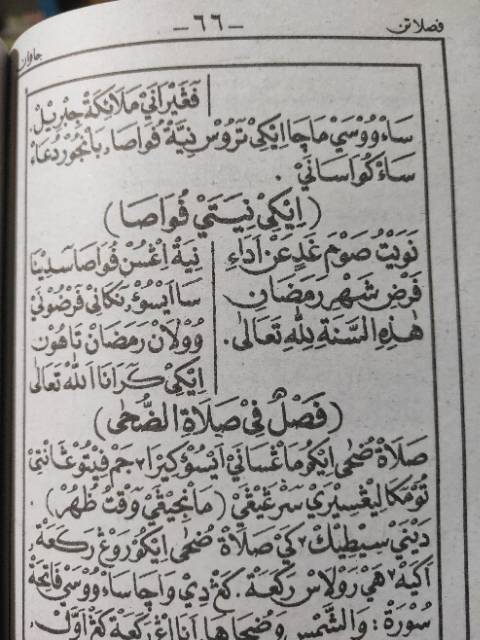 فصلاتن
— ٦٦ —
جاوان
فَڠَيْرَانَيْ مَلَائِكَةْ جِبْرِيْلْ.
سَاءْوُوْسَيْ مَاچَا اِيْكِيْ تَرُوْسْ نِيَّةْ فُوَاصَا، بَانْجُوْرْ دُعَاءْ
سَاءْ كُوَاسَانَيْ .
(اِيْكِيْ نِيَتَيْ فُوَاصَا)
نَوَيْتُ صَوْمَ غَدٍ عَنْ اَدَاءِ
فَرْضِ شَهْرِ رَمَضَانِ
هٰذِهِ السَّنَةِ لِلّٰهِ تَعَالَى.
نِيَةْ اِڠْسُنْ فُوَاصَا سَدِيْنَا
سَا اَيْسُوْءْ نَكَانِيْ فَرْضُوْنَيْ
وُوْلَانْ رَمَضَانْ تَاهُوْنْ
اِيْكِيْ كَرَانَا اللّٰهُ تَعَالَى
(فَصْلٌ فِيْ صَلَاةِ الضُّحَى)
صَلَاةْ ضُحَى اِيْكُوْ مَاڠْسَانَيْ اَيْسُوْءْ كِيْرَا٢ جَمْ فِيْتُوْ غَانْتِيْ
تُوْمَكَا لِيْڠْسِيْرَيْ سَرْڠَيْڠَيْ (مَانْجِيْڠَيْ وَقْتُ ظُهُرْ) .
دَيْنَيْ سِيْطِيْكْ٢ كَيْ صَلَاةْ ضُحَى اِيْكُوْ رَوْڠْ رَكَعَةْ،
اَكَيْهْ٢ هَيْ رَوْلَاسْ رَكَعَةْ. كَڠْ دِيْ وَاچَا سَاءْوُوْسَيْ فَاتِحَةْ
سُوْرَةْ : وَالشَّمْسِ وَضُحَاهَا، اَنَا اِڠْ رَكَعَةْ كَڠْ اَوَّلْ،